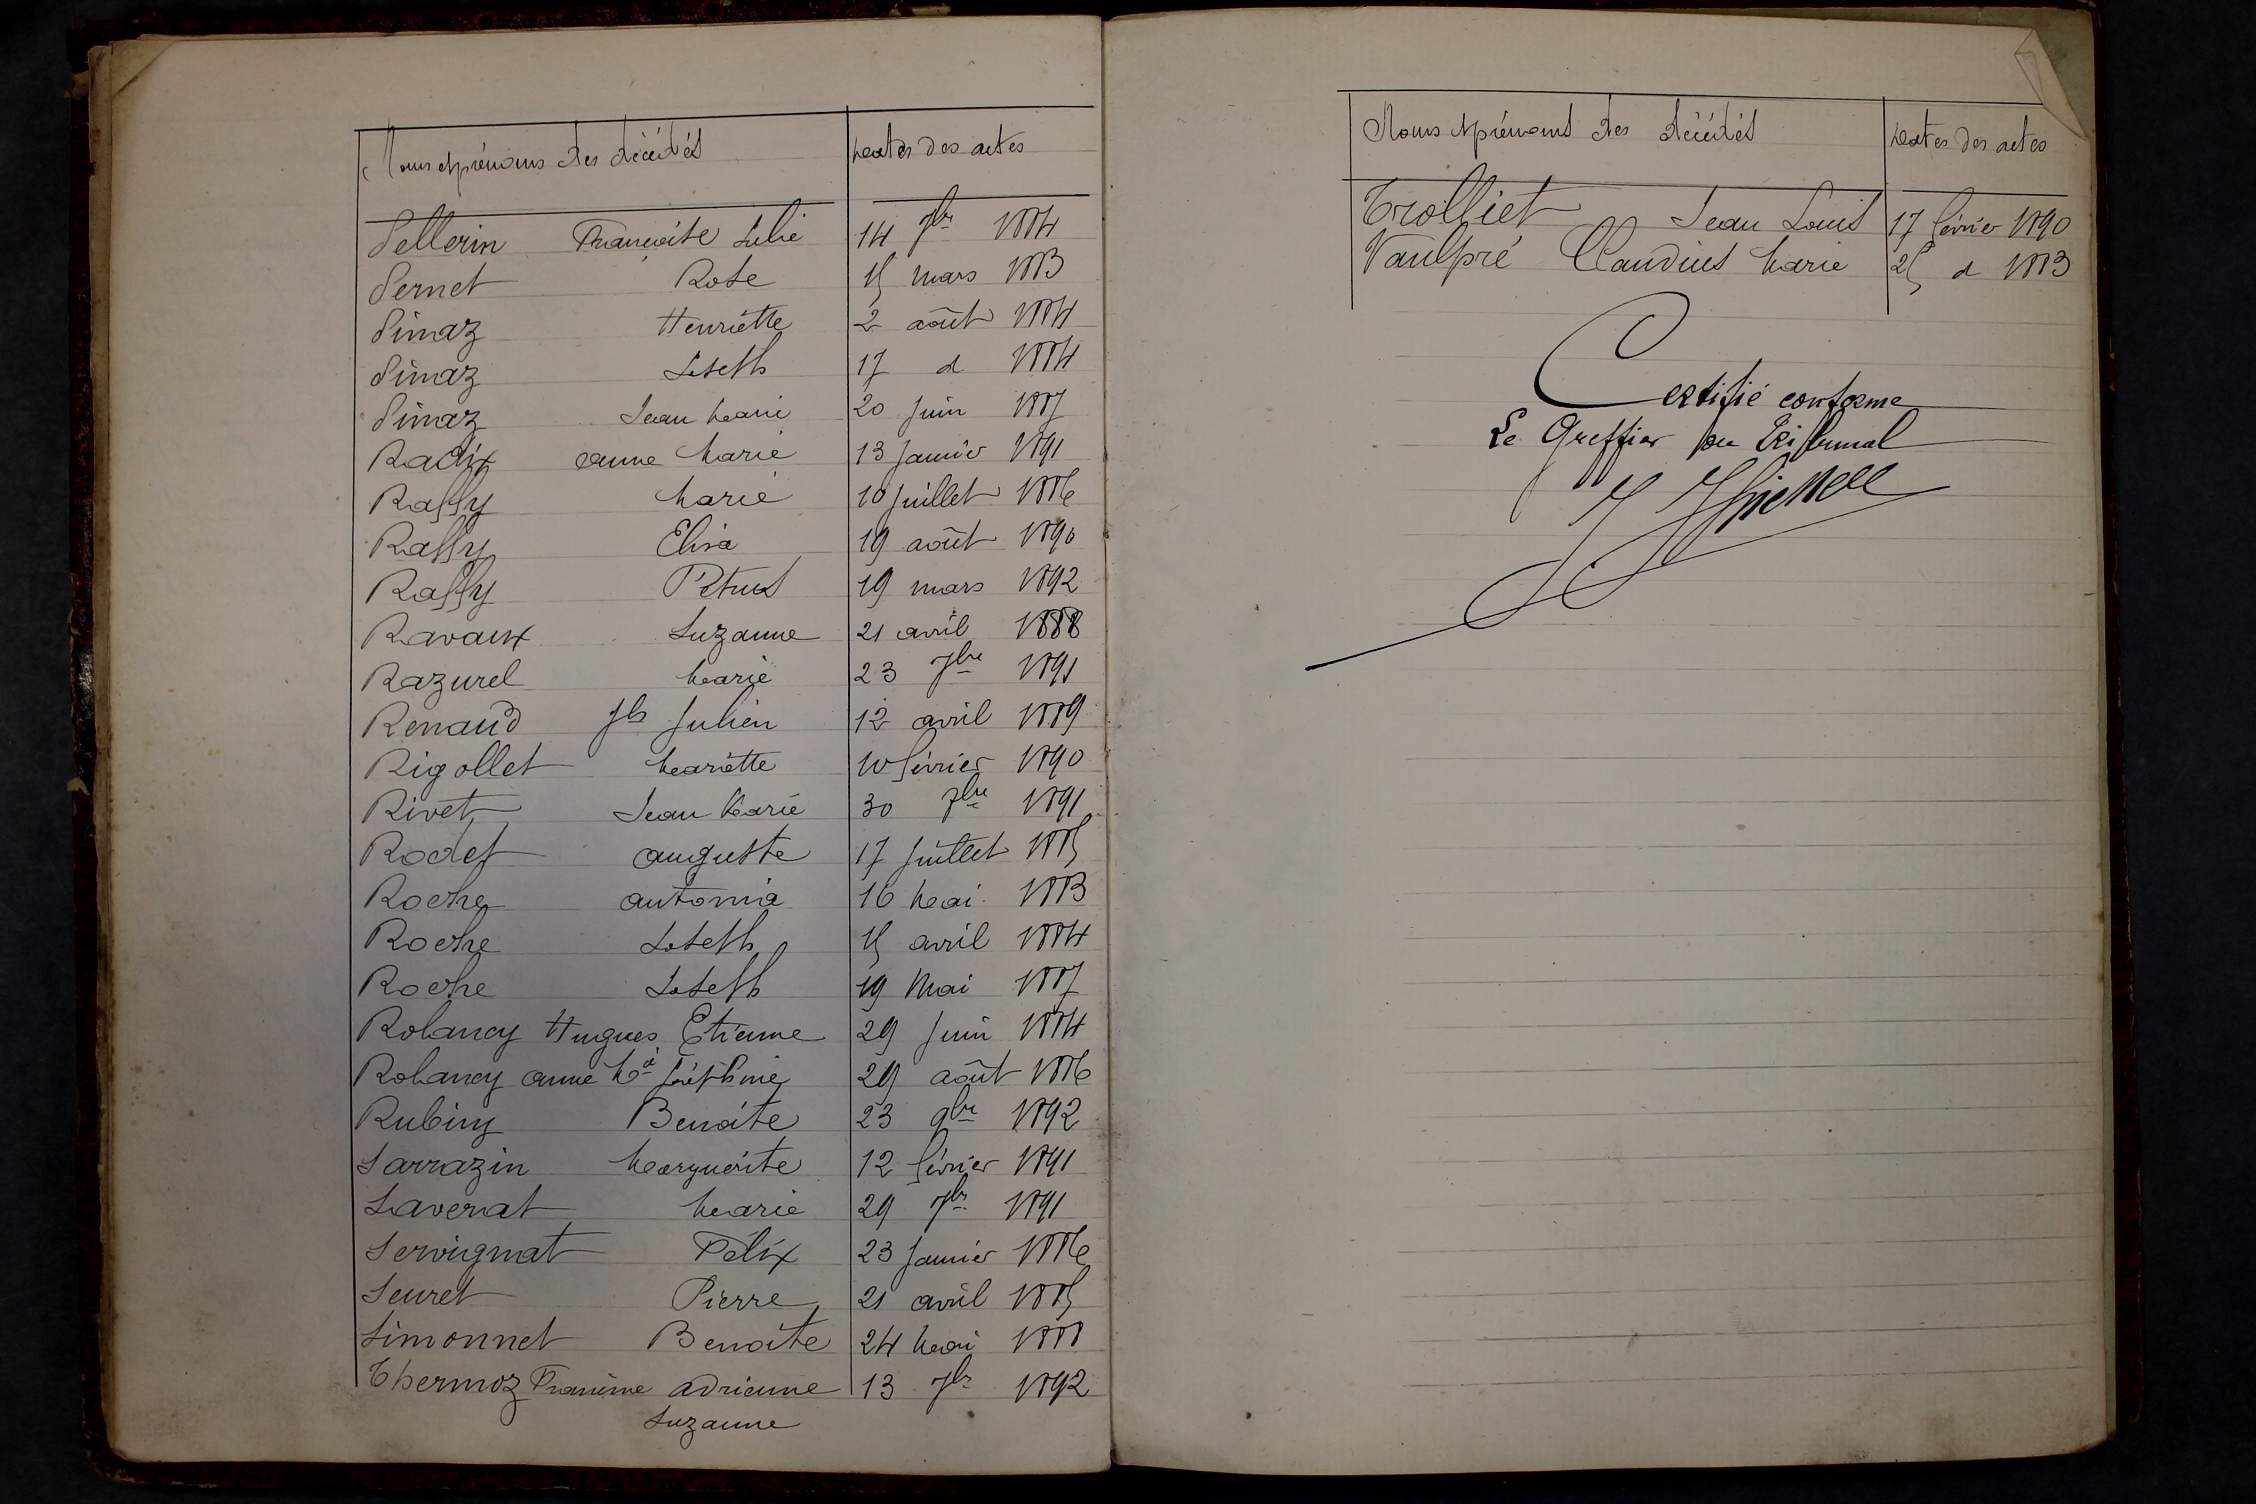 Noms et prénoms des décédés Dates des actes
Pellerin Françoise Julie 14 7bre 1884
Pernet Rose 15 mars 1883
Pinaz Henriette 2 août 1884
Pinaz Joseph 17 d 1884
Pinaz Jean Marie 20 Juin 1887
Radix anne Marie 13 Janvier 1891
Raffy Marie 10 Juillet 1886
Raffy Elisa 19 août 1890
Raffy Pétrus 19 mars 1892
Ravaux Suzanne 21 avril 1888
Razurel Marie 23 7bre 1891
Renaud Jh Julien 12 avril 1889
Rigollet Mariette 10 février 1890
Rivet Jean Marie 30 7bre 1891
Rodet auguste 17 Juillet 1885
Roche antonia 16 Mai 1883
Roche Joseph 15 avril 1884
Roche Joseph 19 Mai 1887
Rolancy Hugues Etienne 29 Juin 1884
Rolancy anne Mie Joséphine 29 août 1886
Rubiny Benoite 23 9bre 1892
Sarrazin Marguerite 12 février 1891
Savenat Marie 29 7bre 1891
Servignat Félix 23 Janvier 1886
Seuret Pierre 21 avril 1885
Simonnet Benoite 24 Mai 1888
Thermoz adrienne 13 7bre 1892
Suzanne
Noms et prénoms des décédés Dates des actes
Trolliet Jean Louis 17 février 1890
Vaulpré Claudius Marie 25 d 1883
Certifié conforme
Le Greffier du Tribunal